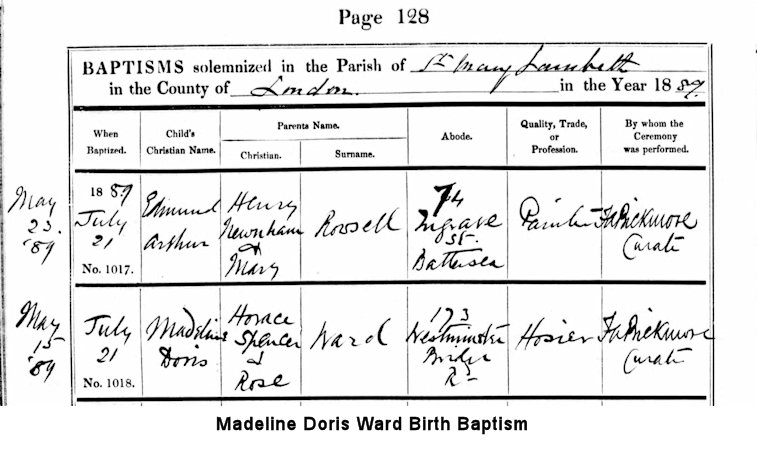 Page 128
BAPTISMS solemnized in the Parish of St Mary Lambeth
in the County of London. in the Year 1889.
When Baptized.
Child's Christian Name.
Parents Name.
Christian.
Surname.
Abode.
Quality, Trade, or Profession.
By whom the Ceremony was performed.
May 23. '89
1889 July 21
No. 1017.
Edmund Arthur
Henry Newnham & Mary
Rowsell
74 Ingrave St. Battersea
Painter
Curate
May 15 '89
July 21
No. 1018.
Madeline Doris
Horace Spencer & Rose
Ward
173 Westminster Bridge Rd
Hosier
Curate
Madeline Doris Ward Birth Baptism